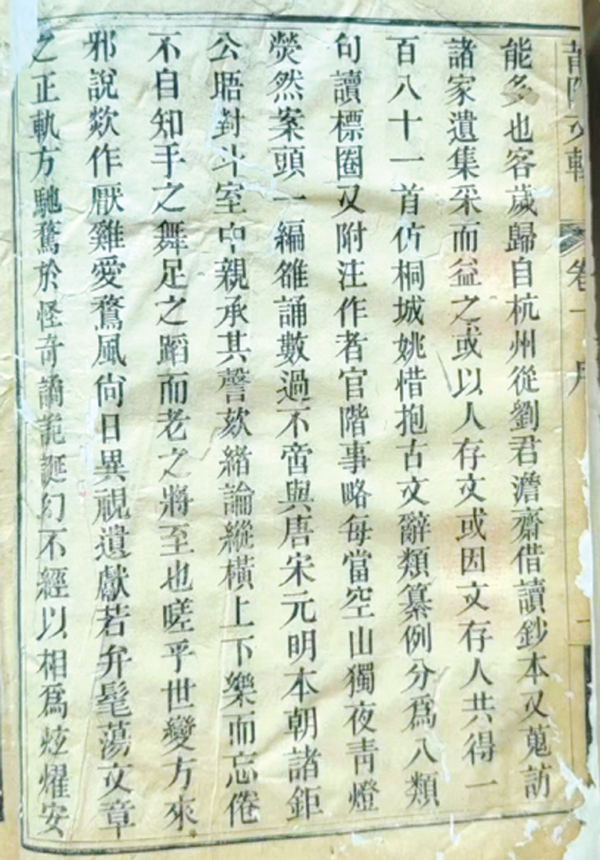 能多也客歲歸自杭州從劉君澹齋借讀鈔本又蒐訪
諸家遺集采而益之或以人存文或因文存人共得一
百八十一首仿桐城姚惜抱古文辭類纂例分爲八類
句讀標圈又附注作者官階事略每當空山獨夜靑燈
熒然案頭一編雒誦數過不啻與唐宋元明本朝諸鉅
公晤對斗室中親承其謦欬緒論縱橫上下樂而忘倦
不自知手之舞足之蹈而老之將至也嗟乎世變方來
邪說欻作厭雞愛鶩風尙日異視遺獻若弁髦蕩文章
之正軌方馳騖於怪奇譎詭誕幻不經以相爲炫燿安
文 卷一